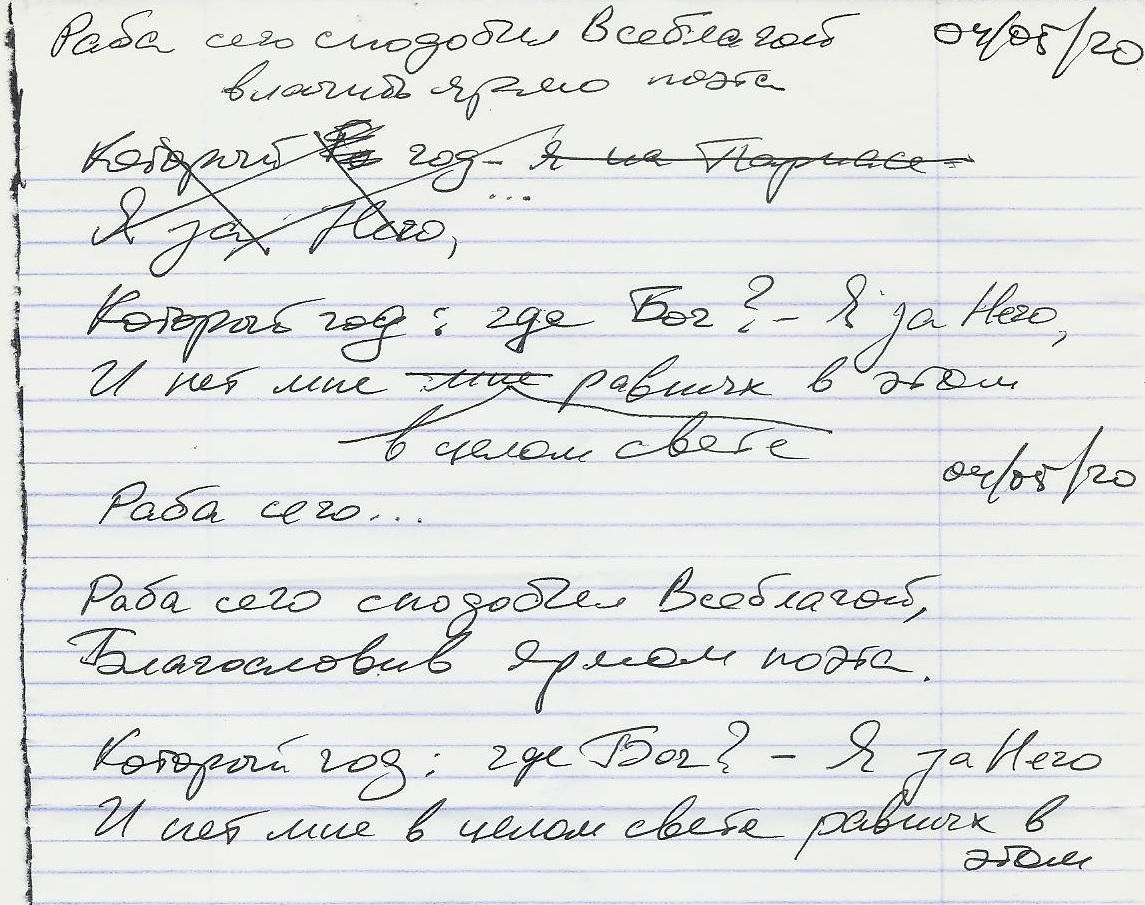 Раба сего сподобил Всеблагой 04/05/20
влачить ярмо поэта
Который год – Я на Парнасе
...
Я за Него,
Который год: где Бог? – Я за Него,
И нет мне мне равных в этом
в целом свете
04/05/20
Раба сего...
Раба сего сподобил Всеблагой,
Благословив ярмом поэта.
Который год: где Бог? – Я за Него
И нет мне в целом свете равных в
этом